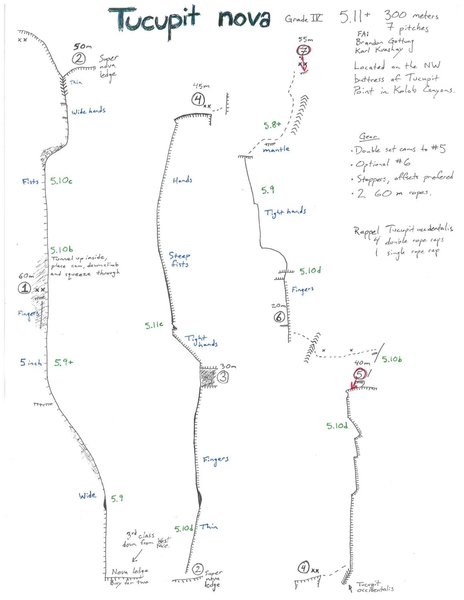 Tucupit nova Grade IV 5.11+ 300 meters
7 pitches
FA:
Brandon Gottung
Karl Kvashay
Located on the NW
buttress of Tucupit
Point in Kolob Canyons.
Gear
• Double set cams to #5
• Optional #6
• Stoppers, offsets prefered
• 2 60 m ropes.
Rappel Tucupit occidentalis
4 double rope raps
1 single rope rap
50m
2
Super
nova
ledge
Thin
Wide hands
Fists
5.10c
5.10b
Tunnel up inside,
place cam, downclimb
and squeeze through
60m
1
xx
Fingers
5 inch
5.9+
Wide
5.9
3rd class
down from West
Face
Nova ledge
Bivy for two
45m
4
xx
Hands
Steep
fists
5.11c
Tight
hands
30m
3
Fingers
5.10d
Thin
2
Super
nova
ledge
55m
7
xx
5.8+
mantle
5.9
Tight hands
5.10d
Fingers
20m
6
x
x
5.10b
40m
5
5.10d
4
xx
Tucupit
occidentalis